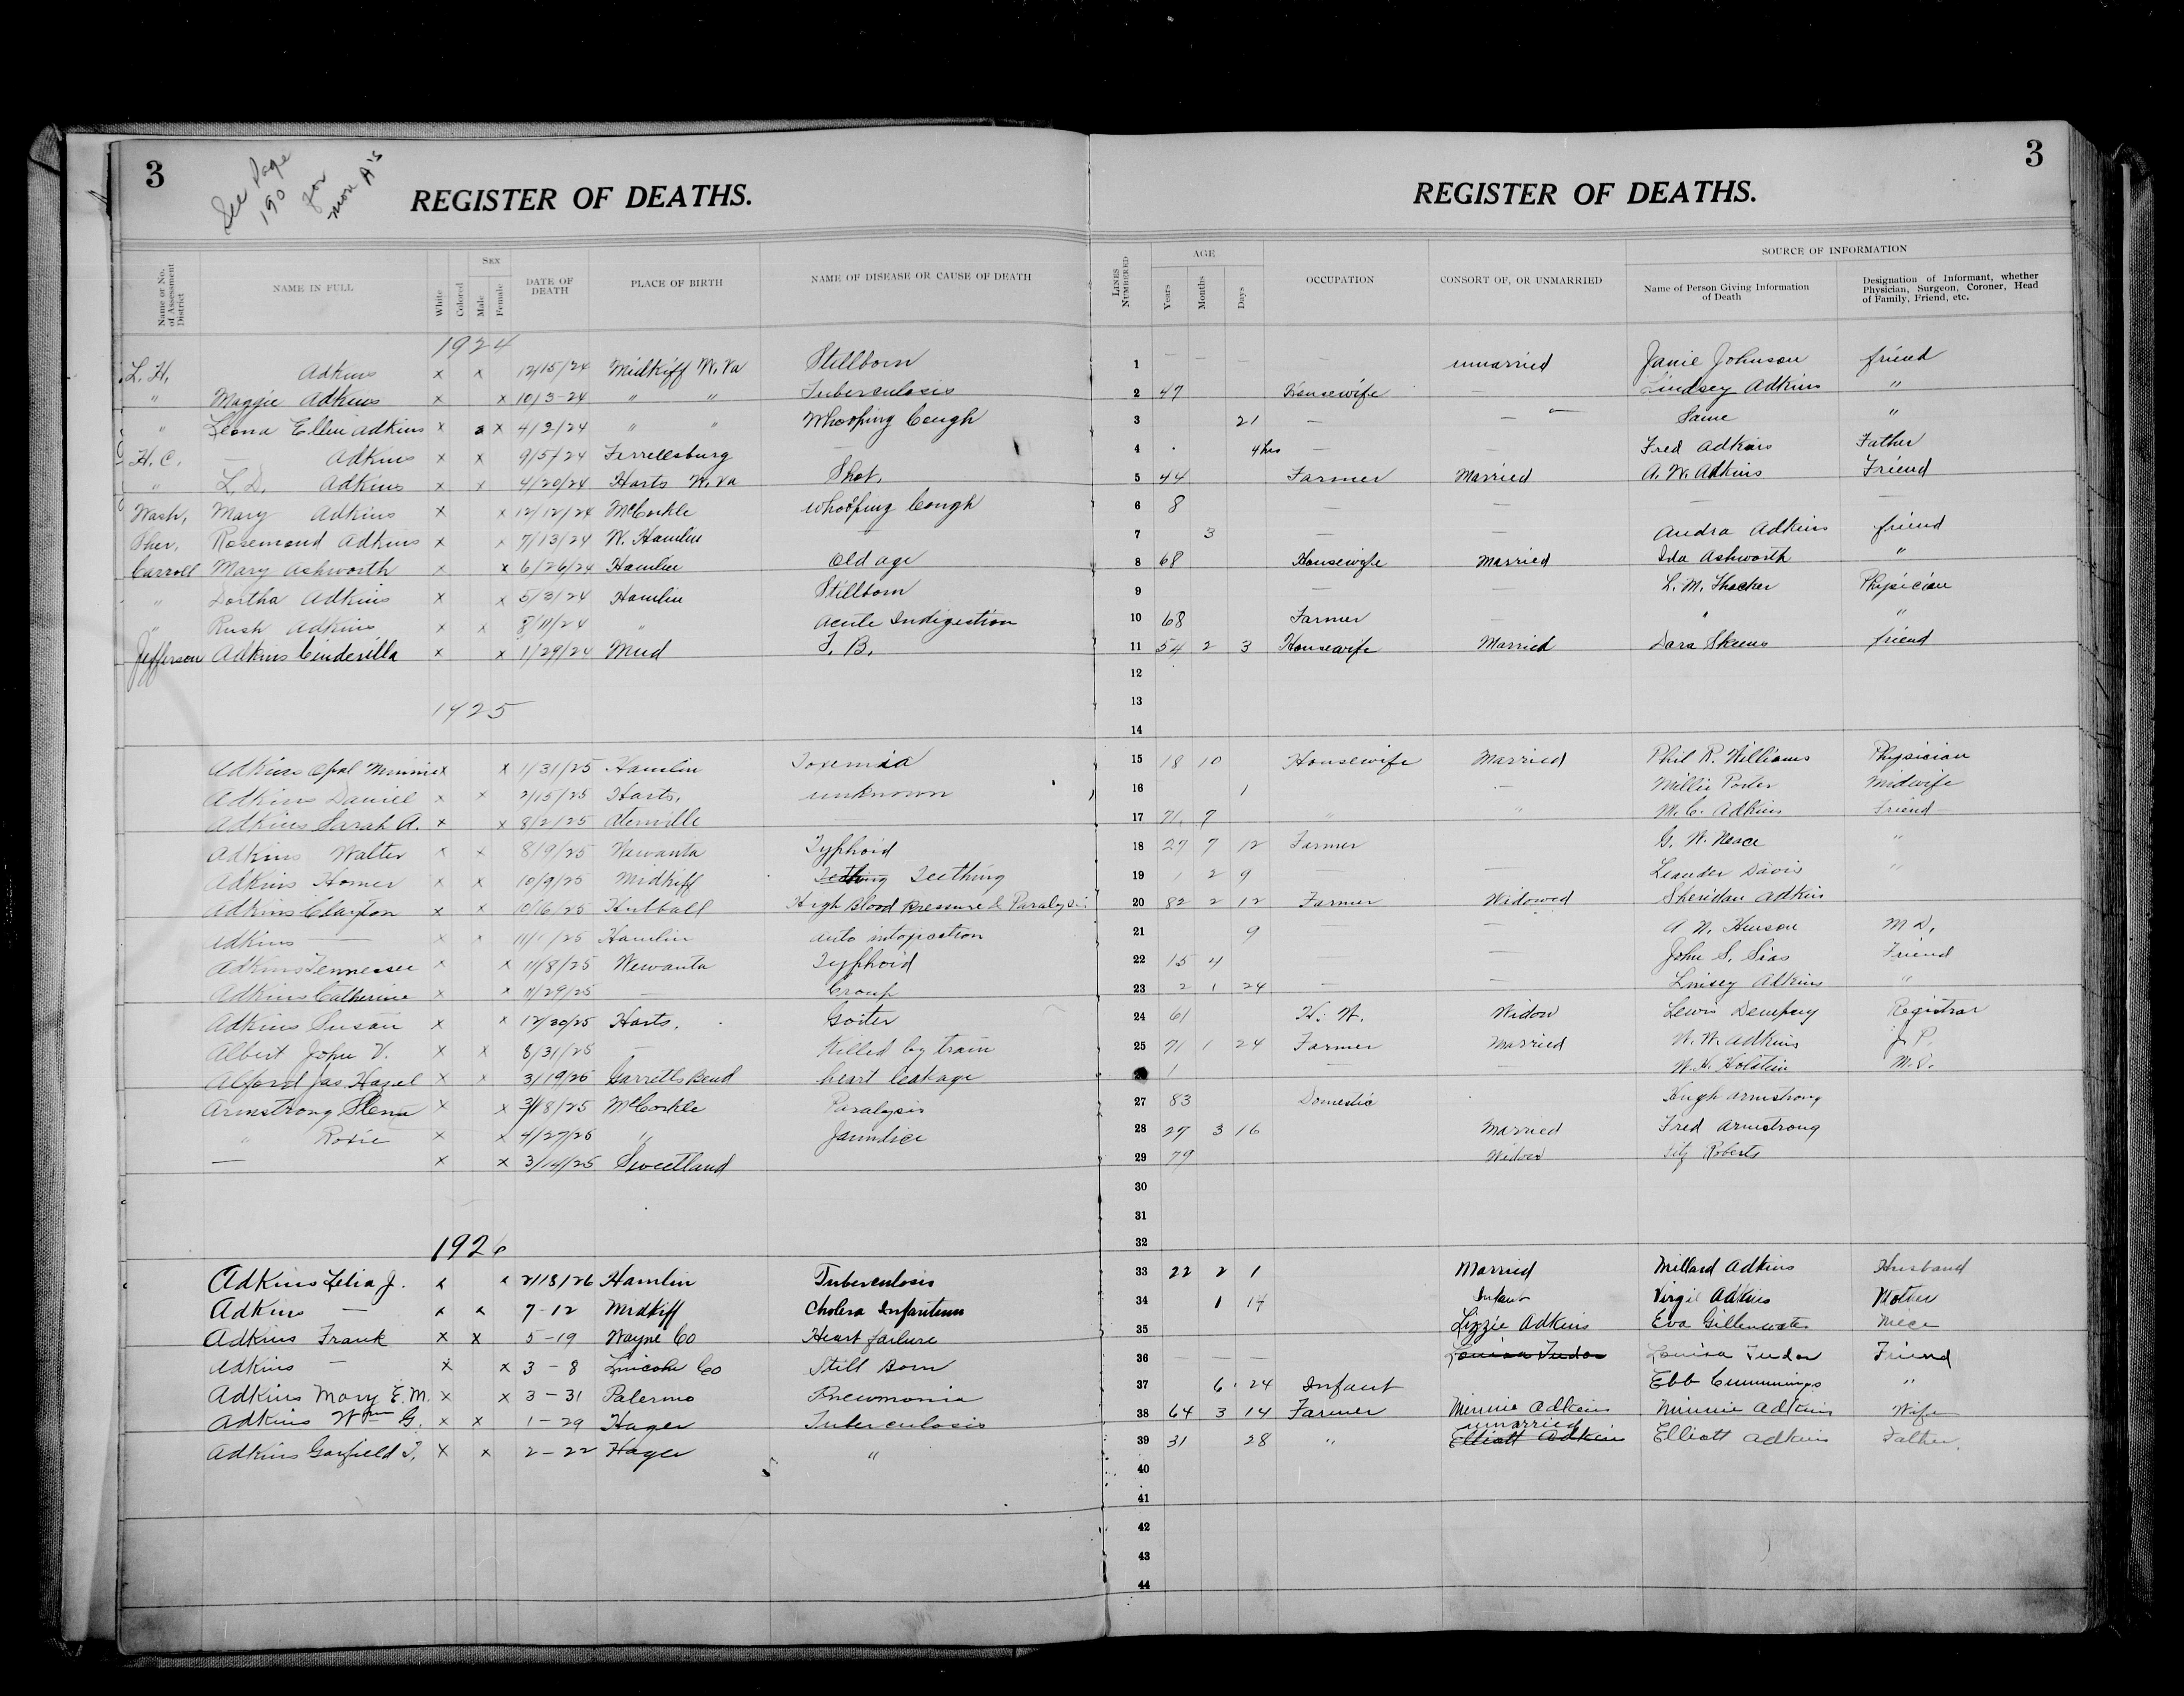 3
See Page
190
for
more A's
REGISTER OF DEATHS.
3
REGISTER OF DEATHS.
Name or No. of Assessment District
NAME IN FULL
White
Colored
SEX
Male
Female
DATE OF DEATH
PLACE OF BIRTH
NAME OF DISEASE OR CAUSE OF DEATH
LINES NUMBERED
AGE
Years
Months
Days
OCCUPATION
CONSORT OF, OR UNMARRIED
SOURCE OF INFORMATION
Name of Person Giving Information of Death
Designation of Informant, whether Physician, Surgeon, Coroner, Head of Family, Friend, etc.
1924
L. H. Adkins x x 12/15/24 Midkiff W. Va Stillborn 1 — — — — unmarried Janie Johnson friend
" Maggie Adkins x x 10/3-24 " " Tuberculosis 2 47 Housewife — Lindsey Adkins "
" Leona Ellin Adkins x x 4/2/24 " " Whooping Cough 3 21 — — Same "
H. C. — Adkins x x 9/5/24 Ferrellsburg — 4 4 hrs — — Fred Adkins Father
" L. D. Adkins x x 4/20/24 Harts W. Va Shot. 5 44 Farmer Married A. W. Adkins Friend
Wash, Mary Adkins x x 12/12/24 McCorkle Whooping Cough 6 8 — — — —
Sher, Rosemond Adkins x x 7/13/24 W. Hamlin 7 3 — — Audra Adkins friend
Carroll Mary Ashworth x x 6/26/24 Hamlin Old age 8 68 Housewife Married Ida Ashworth "
" Dortha Adkins x x 5/3/24 Hamlin Stillborn 9 — — L. M. Thacker Physician
" Rush Adkins x x 8/11/24 " acute Indigestion 10 68 Farmer — " "
Jefferson Adkins Cinderilla x x 1/29/24 Mud T. B. 11 54 2 3 Housewife Married Dora Skeens friend
12
1925
13
14
Adkins Opal Minnie x x 1/31/25 Hamlin Toxemia 15 18 10 Housewife Married Phil R. Williams Physician
Adkins Daniel x x 2/15/25 Harts, unknown 16 1 — Millie Porter Midwife
Adkins Sarah A. x x 8/2/25 Atenville — 17 71 7 " " M. C. Adkins Friend
Adkins Walter x x 8/9/25 Wewanta Typhoid 18 27 7 12 Farmer — G. W. Neace "
Adkins Homer x x 10/9/25 Midkiff Teething Teething 19 1 2 9 — — Leander Davis "
Adkins Clayton x x 10/6/25 Hubball High Blood Pressure & Paralysis 20 82 2 12 Farmer Widowed Sheridan Adkins
Adkins — x x 11/1/25 Hamlin auto intoxication 21 9 — — A. N. Henson M D,
Adkins Tennessee x x 11/8/25 Wewanta Typhoid 22 15 4 — John S. Sias Friend
Adkins Catherine x x 11/29/25 — Croup 23 2 1 24 — — Linsey Adkins "
Adkins Susan x x 12/30/25 Harts. Goiter 24 61 H. W. Widow Lewis Dempsey Registrar
Albert John V. x x 8/31/25 — Killed by train 25 71 1 24 Farmer Married W. W. Adkins J. P.
Alford Jas Hazel x x 3/19/25 Garretts Bend heart leakage 1 — — W. H. Holstein M.D.
Armstrong x x 3/18/25 McCorkle Paralysis 27 83 Domestic Hugh Armstrong
" Rosie x x 4/27/25 " Jaundice 28 27 3 16 Married Fred Armstrong
— x x 3/14/25 Sweetland 29 79 Widow Roberts
30
31
1926
32
Adkins Lelia J. x x 2/18/26 Hamlin Tuberculosis 33 22 2 1 Married Millard Adkins Husband
Adkins — x x 7-12 Midkiff Cholera Infantum 34 1 14 Infant Virgil Adkins Mother
Adkins Frank x x 5-19 Wayne Co Heart failure 35 Lizzie Adkins Eva Gillenwater Niece
Adkins — x x 3-8 Lincoln Co Still Born 36 — — — Louisa Tudor Louisa Tudor Friend
Adkins Mary E. M. x x 3-31 Palermo Pneumonia 37 6 24 Infant Ebb Cummings "
Adkins Wm G. x x 1-29 Hager Tuberculosis 38 64 3 14 Farmer Minnie Adkins Minnie Adkins Wife
unmarried
Adkins Garfield T. x x 2-22 Hager " 39 31 28 " Elliott Adkins Elliott Adkins Father.
40
41
42
43
44